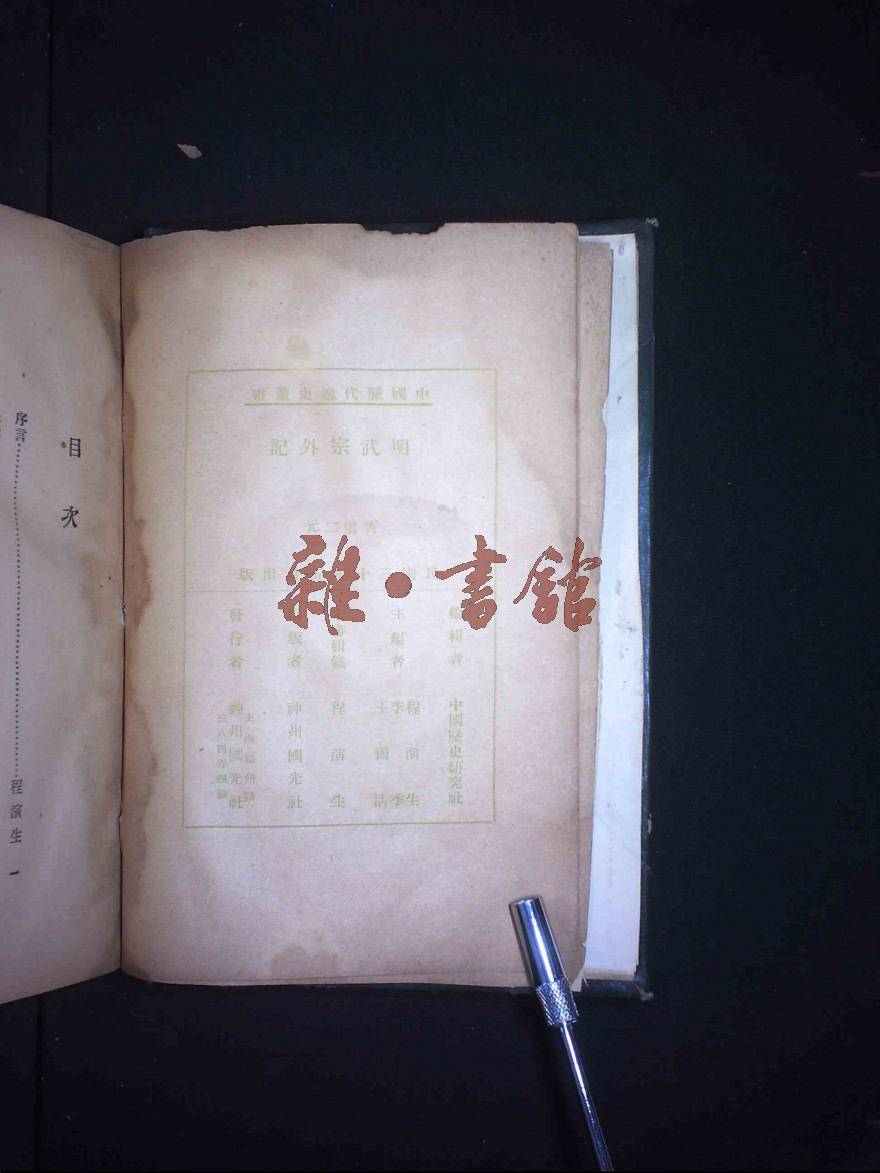 中國歷代逸史叢書
明武宗外記
實價二元
出版
編輯者 中國歷史研究社
主編者 程演生 李季 王獨清
程演生
版者 神州國光社
發行者 神州國光社
上海福州路
三八四弄四號
目次
序言 程演生 一
雜·書館